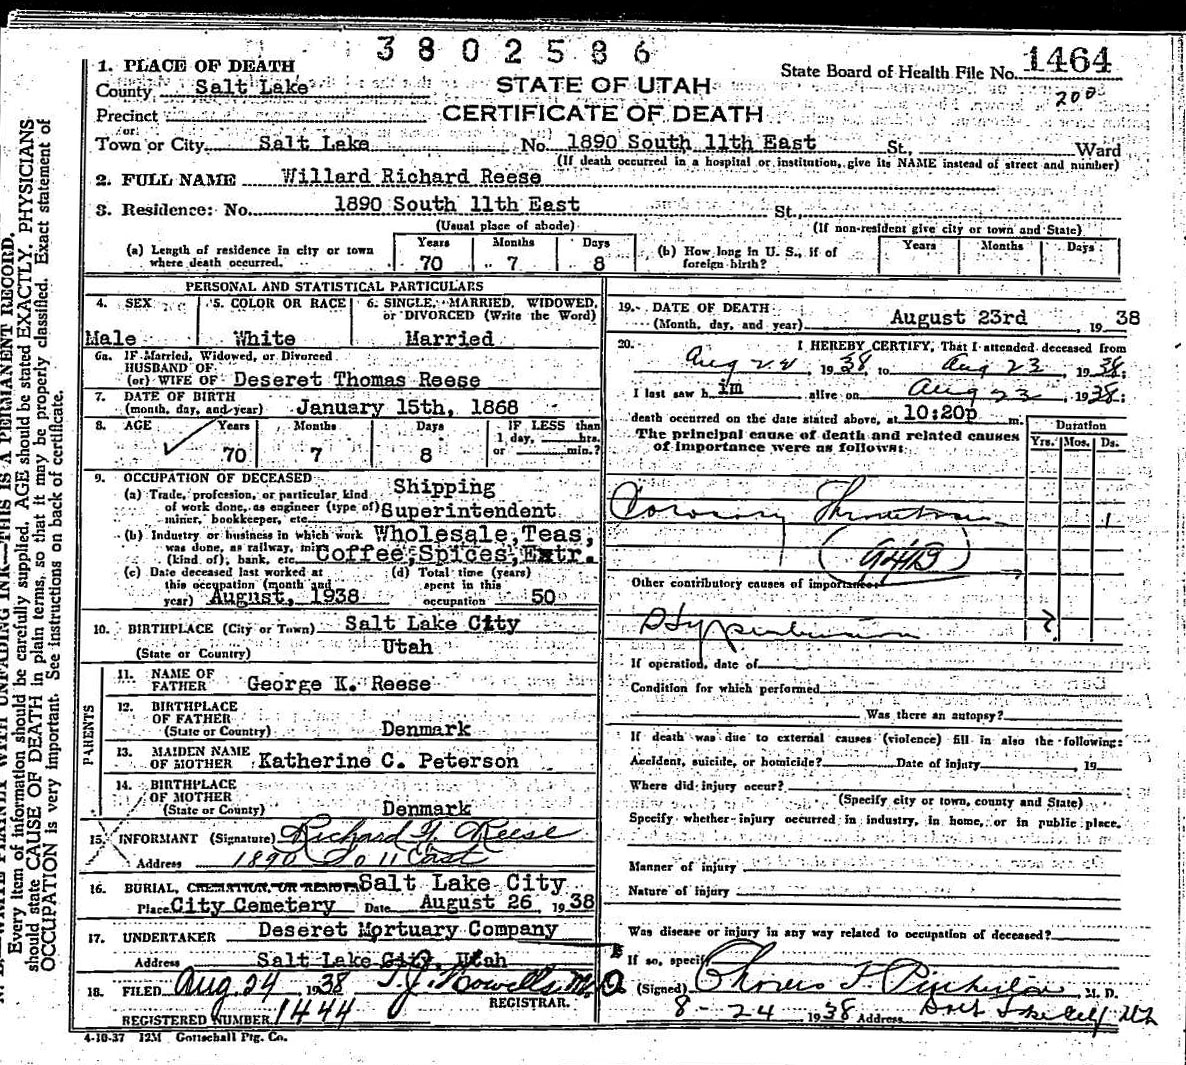 3802586
1. PLACE OF DEATH
County Salt Lake
STATE OF UTAH
State Board of Health File No. 1464
200
Precinct
CERTIFICATE OF DEATH
or
Town or City Salt Lake No. 1890 South 11th East St., Ward
(If death occurred in a hospital or institution, give its NAME instead of street and number)
2. FULL NAME Willard Richard Reese
3. Residence: No. 1890 South 11th East St.,
(Usual place of abode) (If non-resident give city or town and State)
(a) Length of residence in city or town where death occurred. Years 70 Months 7 Days 8
(b) How long in U. S., if of foreign birth? Years Months Days
PERSONAL AND STATISTICAL PARTICULARS
4. SEX Male
5. COLOR OR RACE White
6. SINGLE, MARRIED, WIDOWED, or DIVORCED (Write the Word) Married
6a. IF Married, Widowed, or Divorced
HUSBAND OF
(or) WIFE OF Deseret Thomas Reese
7. DATE OF BIRTH
(month, day, and year) January 15th, 1868
8. AGE Years 70 Months 7 Days 8 IF LESS than 1 day, hrs. or min.?
9. OCCUPATION OF DECEASED
(a) Trade, profession, or particular kind of work done, as engineer (type of) miner, bookkeeper, etc. Shipping Superintendent
(b) Industry or business in which work was done, as railway, mine (kind of), bank, etc. Wholesale, Teas, Coffee, Spices, Extr.
(c) Date deceased last worked at this occupation (month and year) August, 1938
(d) Total time (years) spent in this occupation 50
10. BIRTHPLACE (City or Town) Salt Lake City
(State or Country) Utah
PARENTS
11. NAME OF FATHER George K. Reese
12. BIRTHPLACE OF FATHER (State or Country) Denmark
13. MAIDEN NAME OF MOTHER Katherine C. Peterson
14. BIRTHPLACE OF MOTHER (State or County) Denmark
15. INFORMANT (Signature) Richard Reese
Address 1890 So 11 East
16. BURIAL, CREMATION, OR REMOVAL Salt Lake City
Place City Cemetery Date August 26, 1938
17. UNDERTAKER Deseret Mortuary Company
Address Salt Lake City, Utah
18. FILED Aug. 24 1938 M.D.
REGISTRAR.
REGISTERED NUMBER 1444
4-10-37 12M Gottschall Ptg. Co.
19. DATE OF DEATH
(Month, day, and year) August 23rd, 1938
20. I HEREBY CERTIFY, That I attended deceased from
Aug 1938, to Aug 23, 1938;
I last saw him alive on Aug 23 1938;
death occurred on the date stated above, at 10:20p m.
The principal cause of death and related causes of importance were as follows:
Duration
Yrs. Mos. Ds.
Coronary Thrombosis 1
(94B)
Other contributory causes of importance:
Hypertension ?
If operation, date of
Condition for which performed
Was there an autopsy?
If death was due to external causes (violence) fill in also the following:
Accident, suicide, or homicide? Date of injury 19
Where did injury occur?
(Specify city or town, county and State)
Specify whether injury occurred in industry, in home, or in public place.
Manner of injury
Nature of injury
Was disease or injury in any way related to occupation of deceased?
If so, specify
(Signed) M. D.
8-24 1938 Address
WRITE PLAINLY WITH UNFADING INK—THIS IS A PERMANENT RECORD.
Every item of information should be carefully supplied. AGE should be stated EXACTLY. PHYSICIANS
should state CAUSE OF DEATH in plain terms, so that it may be properly classified. Exact statement of
OCCUPATION is very important. See instructions on back of certificate.